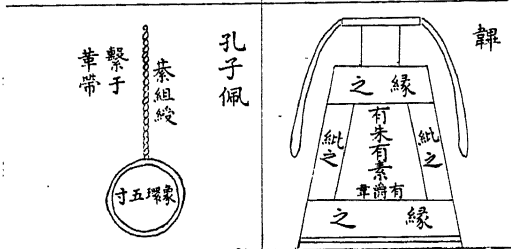 韠
緣之
紕之
有朱有素
有爵韋
紕之
緣之
孔子佩
綦組綬
繫于
革帶
象環五寸